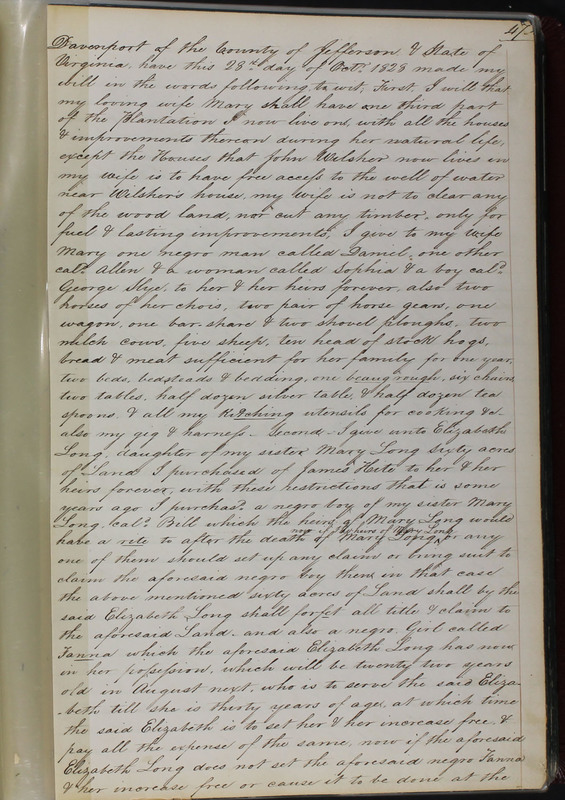 47
Davenport of the County of Jefferson & State of
Virginia, have this 28th day of Octr. 1828 made my
will in the words following, to wit, First, I will that
my loving wife Mary shall have one third part
of the Plantation I now live on, with all the houses
& improvements thereon during her natural life,
except the Houses that John Wilsher now lives in
my wife is to have free access to the well of water
near Wilsher's house, my wife is not to clear any
of the wood land, nor cut any timber, only for
fuel & lasting improvements, I give to my wife
Mary one negro man called Daniel, one other
cald. Allen & a woman called Sophia & a boy cald.
George Slye, to her & her heirs forever, also two
horses of her chois, two pair of horse gears, one
wagon, one bar-share & two shovel ploughs, two
milch cows, five sheep, ten head of stock hogs,
bread & meat sufficient for her family for one year,
two beds, bedsteads & bedding, one beaugrough, six chairs
two tables, half dozen silver table & half dozen tea
spoons & all my Kitching utensils for cooking &c.
also my gig & harness - Second - I give unto Elizabeth
Long, daughter of my sister Mary Long sixty acres
of Land I purchased of James Hite to her & her
heirs forever, with these restrictions that is some
years ago I purchasd. a negro boy of my sister Mary
Long, cald. Bill which the heirs of Mary Long would
have a rite to after the death of Mary Long, or any
one of them should set up any claim or bring suit to
claim the aforesaid negro boy then in that case
the above mentioned sixty acres of Land shall by the
said Elizabeth Long shall forfet all title & claim to
the aforesaid Land - and also a negro Girl called
Fanna which the aforesaid Elizabeth Long has now
in her possession, which will be twenty two years
old in August next, who is to serve the said Eliza-
-beth till she is thirty years of age, at which time
the said Elizabeth is to set her & her increase free, &
pay all the expense of the same, now if the aforesaid
Elizabeth Long does not set the aforesaid negro Fanna
& her increase free or cause it to be done at the